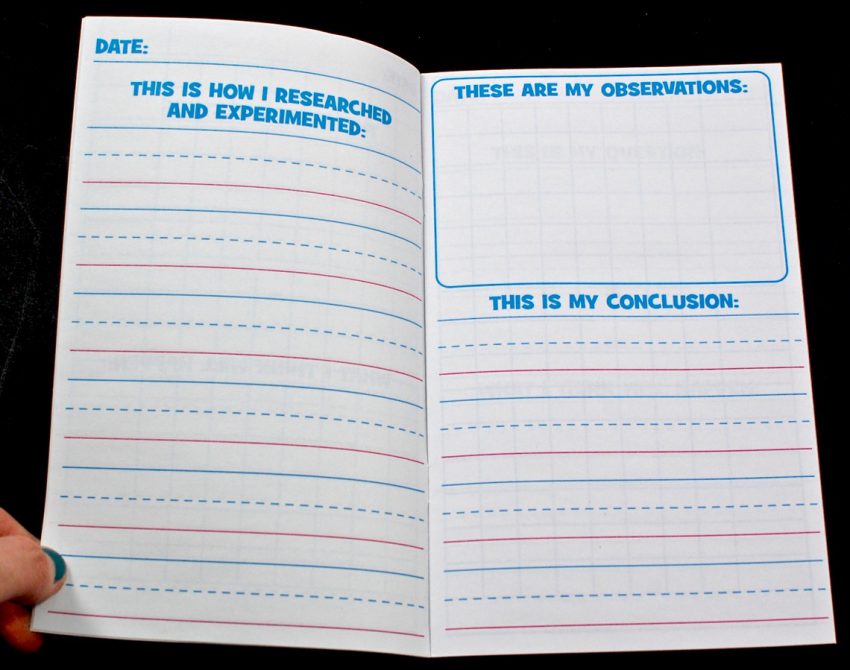 DATE:
THIS IS HOW I RESEARCHED
AND EXPERIMENTED:
THESE ARE MY OBSERVATIONS:
THIS IS MY CONCLUSION: